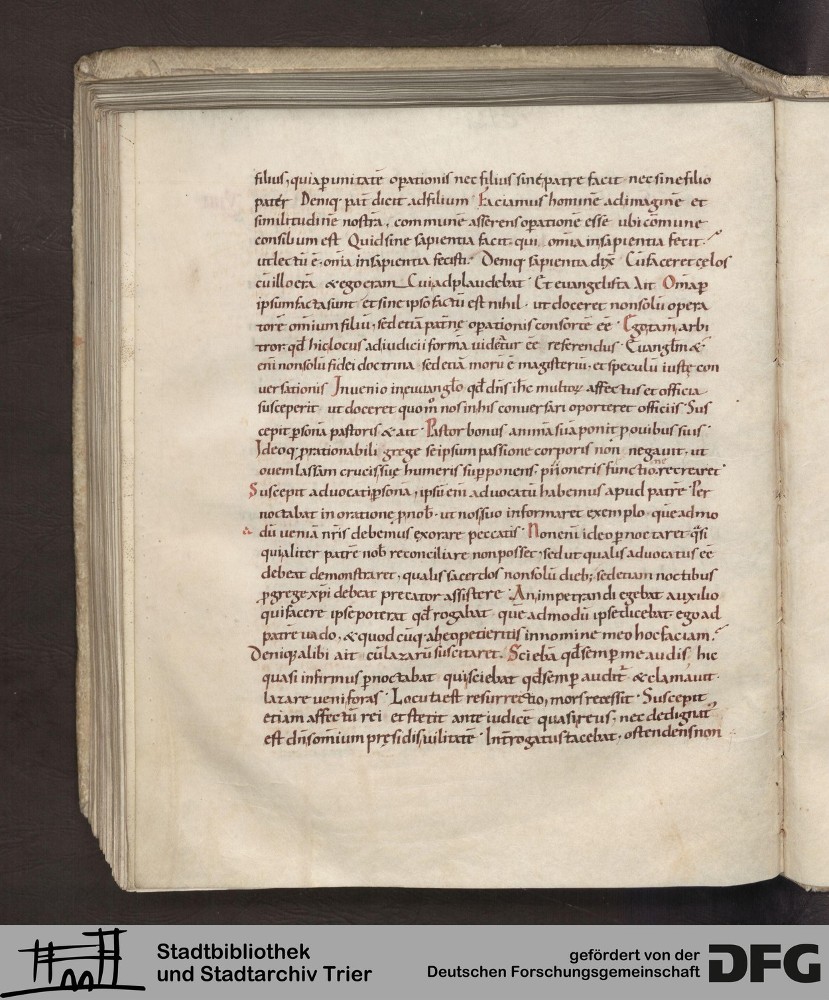 filius, quia p unitatē opationis nec filius sine patre facit nec sine filio
pater Deniq; pat̄ dicit ad filium Faciamus hominē ad imaginē et
similitudinē nostrā, commune asserens opationē esse ubi cōmune
consilium est Quid sine sapientia facit qui omīa in sapientia fecit
ut lectū ē, omīa in sapientia fecisti. Deniq; sapientia dix̄ Cū faceret cęlos
cū illo erā & ego eram Cui adplaudebat Et evangelista Ait Omīa p
ipsum facta sunt et sine ipso factū est nihil, ut doceret non solū opera
torē omnium filiū, sed etiā patnę opationis consortē ēē Ego tam̄ arbi
tror qđ hic locus ad iudicii formā videtur ēē referendus Evangłm &
enī non solū fidei doctrina sed etiā morū ē magisteriū, et speculū iustę con
versationis Invenio in evanglo qđ dn̄s ih̄c multoꝝ affectus et officia
susceperit ut doceret quom̄ nos in his conversari oporteret officiis Sus
cepit psonā pastoris & ait Pastor bonus animā suā ponit p ovibus suis
Ideoq; p rationabili grege se ipsum passione corporis non negavit ut
ovem lassam crucis suę humeris supponens, p
Suscepit advocati psonā, ipsū enī advocatū habemus apud patrē Per
noctabat in oratione p nob̄ ut nos suo informaret exemplo quēadmo
dū veniā nr̄is debemus exorare peccatis Non enim ideo pnoctaret qsi
qui aliter patrē nob̄ reconciliare non posset, sed ut qualis advocatus ēē
debeat demonstraret, qualis sacerdos non solū dieb; sed etiam noctibus
p grege xp̄i debeat precator assistere An impetrandi egebat auxilio
qui facere ipse poterat qđ rogabat quēadmodū ipse dicebat ego ad
patrē vado, & quodcūq; a petieritis in nomine meo hoc faciam
Deniq; alibi ait cū lazarū suscitaret Sciebā qđ semp me audis hic
quasi infirmus pnoctabat qui sciebat qđ semp audit̄ & clamavit
lazare veni foras Locuta est resurrectio, mors recessit Suscepit
etiam affectū rei et stetit ante iudicē quasi reus, nec dedignat
est dn̄s omium pręsidis vilitatē Int̄rogatus tacebat, ostendens non
Stadtbibliothek
und Stadtarchiv Trier
gefördert von der
Deutschen Forschungsgemeinschaft
DFG